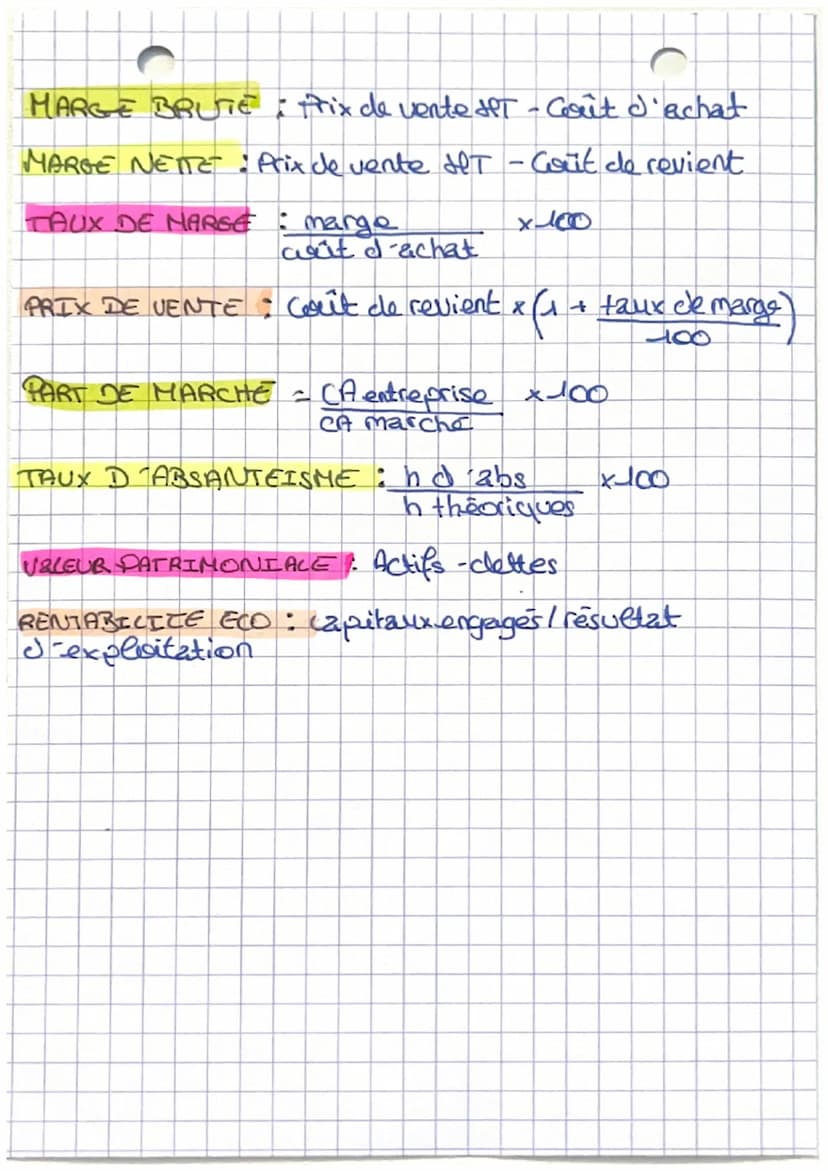 MARGE BRUTE : Prix de vente HT - Coût d'achat
MARGE NETTE : Prix de vente HT - Coût de revient
TAUX DE MARGE : marge x 100
coût d'achat
PRIX DE VENTE : Coût de revient x (1 + taux de marge)
100
PART DE MARCHÉ = CA entreprise x 100
CA marché
TAUX D'ABSANTEISME : h d'abs x 100
h théoriques
VALEUR PATRIMONIALE : Actifs - dettes
RENTABILITE ECO : capitaux engagés / résultat
d'exploitation